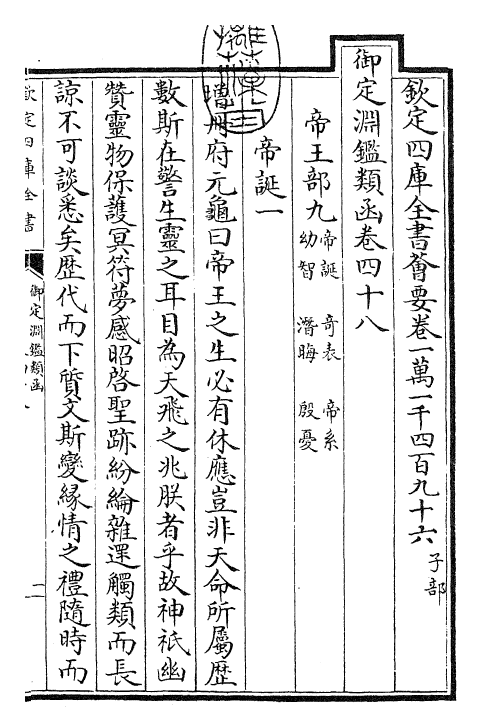 欽定四庫全書薈要卷一萬一千四百九十六 子部
御定淵鑑類函卷四十八
帝王部九 帝誕 奇表 帝系 幼智 潛晦 殷憂
帝誕一
增冊府元龜曰帝王之生必有休應豈非天命所屬歷
數斯在警生靈之耳目為天飛之兆朕者乎故神祇幽
贊靈物保護冥符夢感昭啓聖跡紛綸雜遝觸類而長
諒不可談悉矣歴代而下質文斯變緣情之禮隨時而
欽定四庫全書
御定淵鑑類函
二